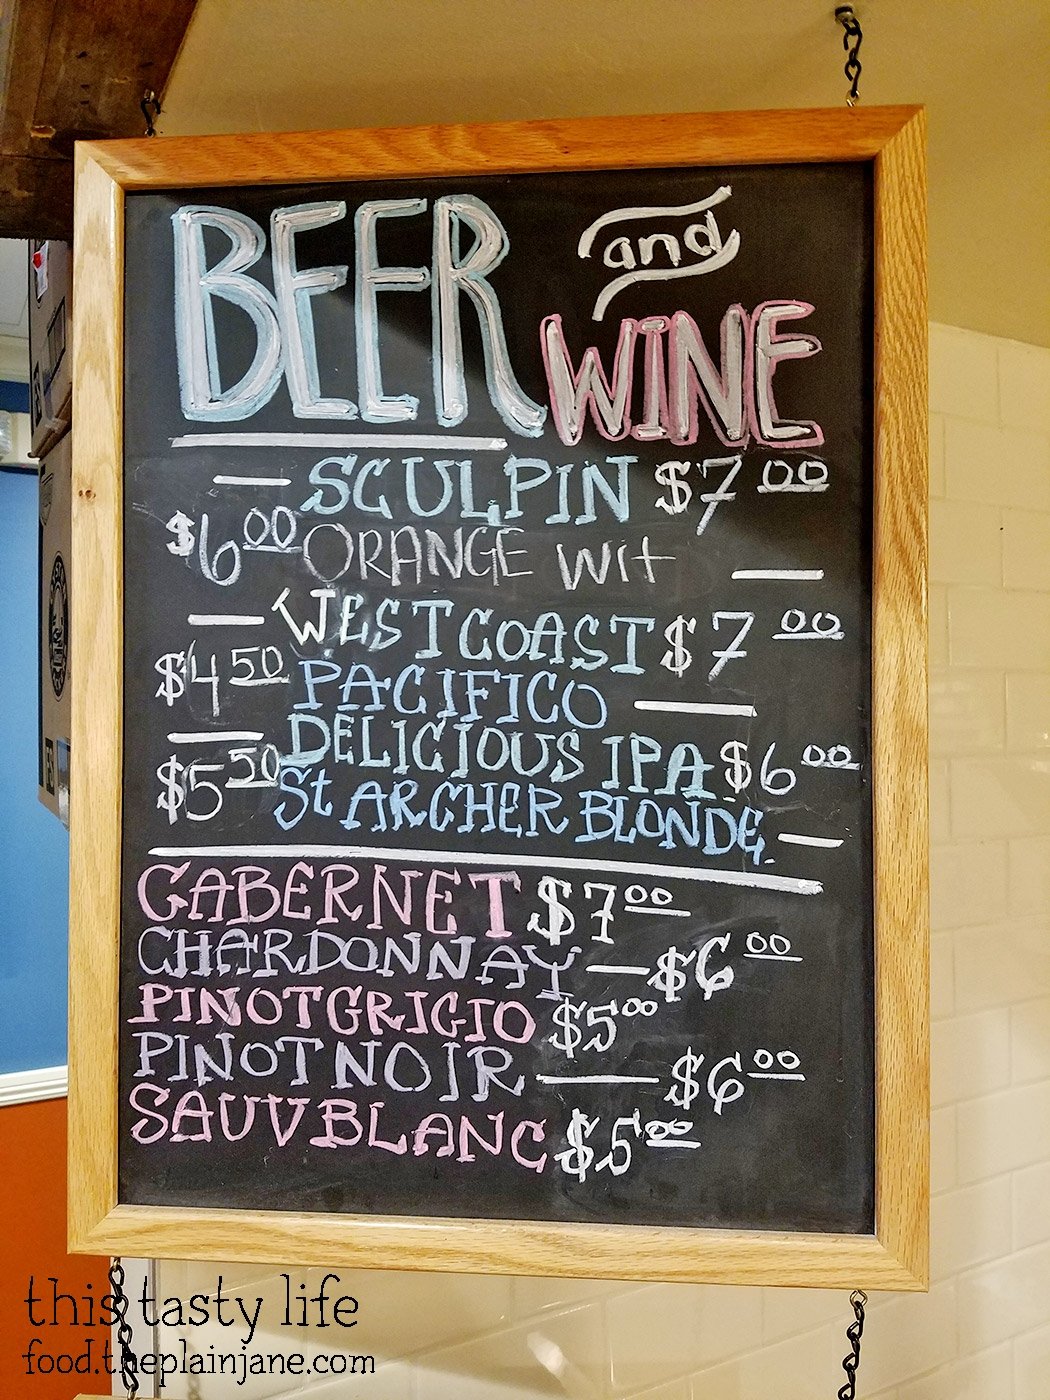 BEER and
WINE
SCULPIN $7.00
$6.00 ORANGE Wit
WEST COAST $7.00
$4.50 PACIFICO
DELICIOUS IPA $6.00
$5.50 St ARCHER BLONDE
CABERNET $7.00
CHARDONNAY — $6.00
PINOT GRIGIO $5.00
PINOT NOIR — $6.00
SAUV BLANC $5.00
this tasty life
food.theplainjane.com